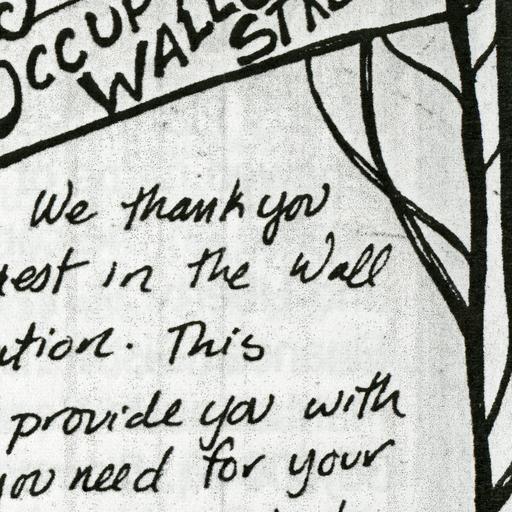 OCCUP
WALL
We thank you
est in the Wall
tion. This
provide you with
you need for your